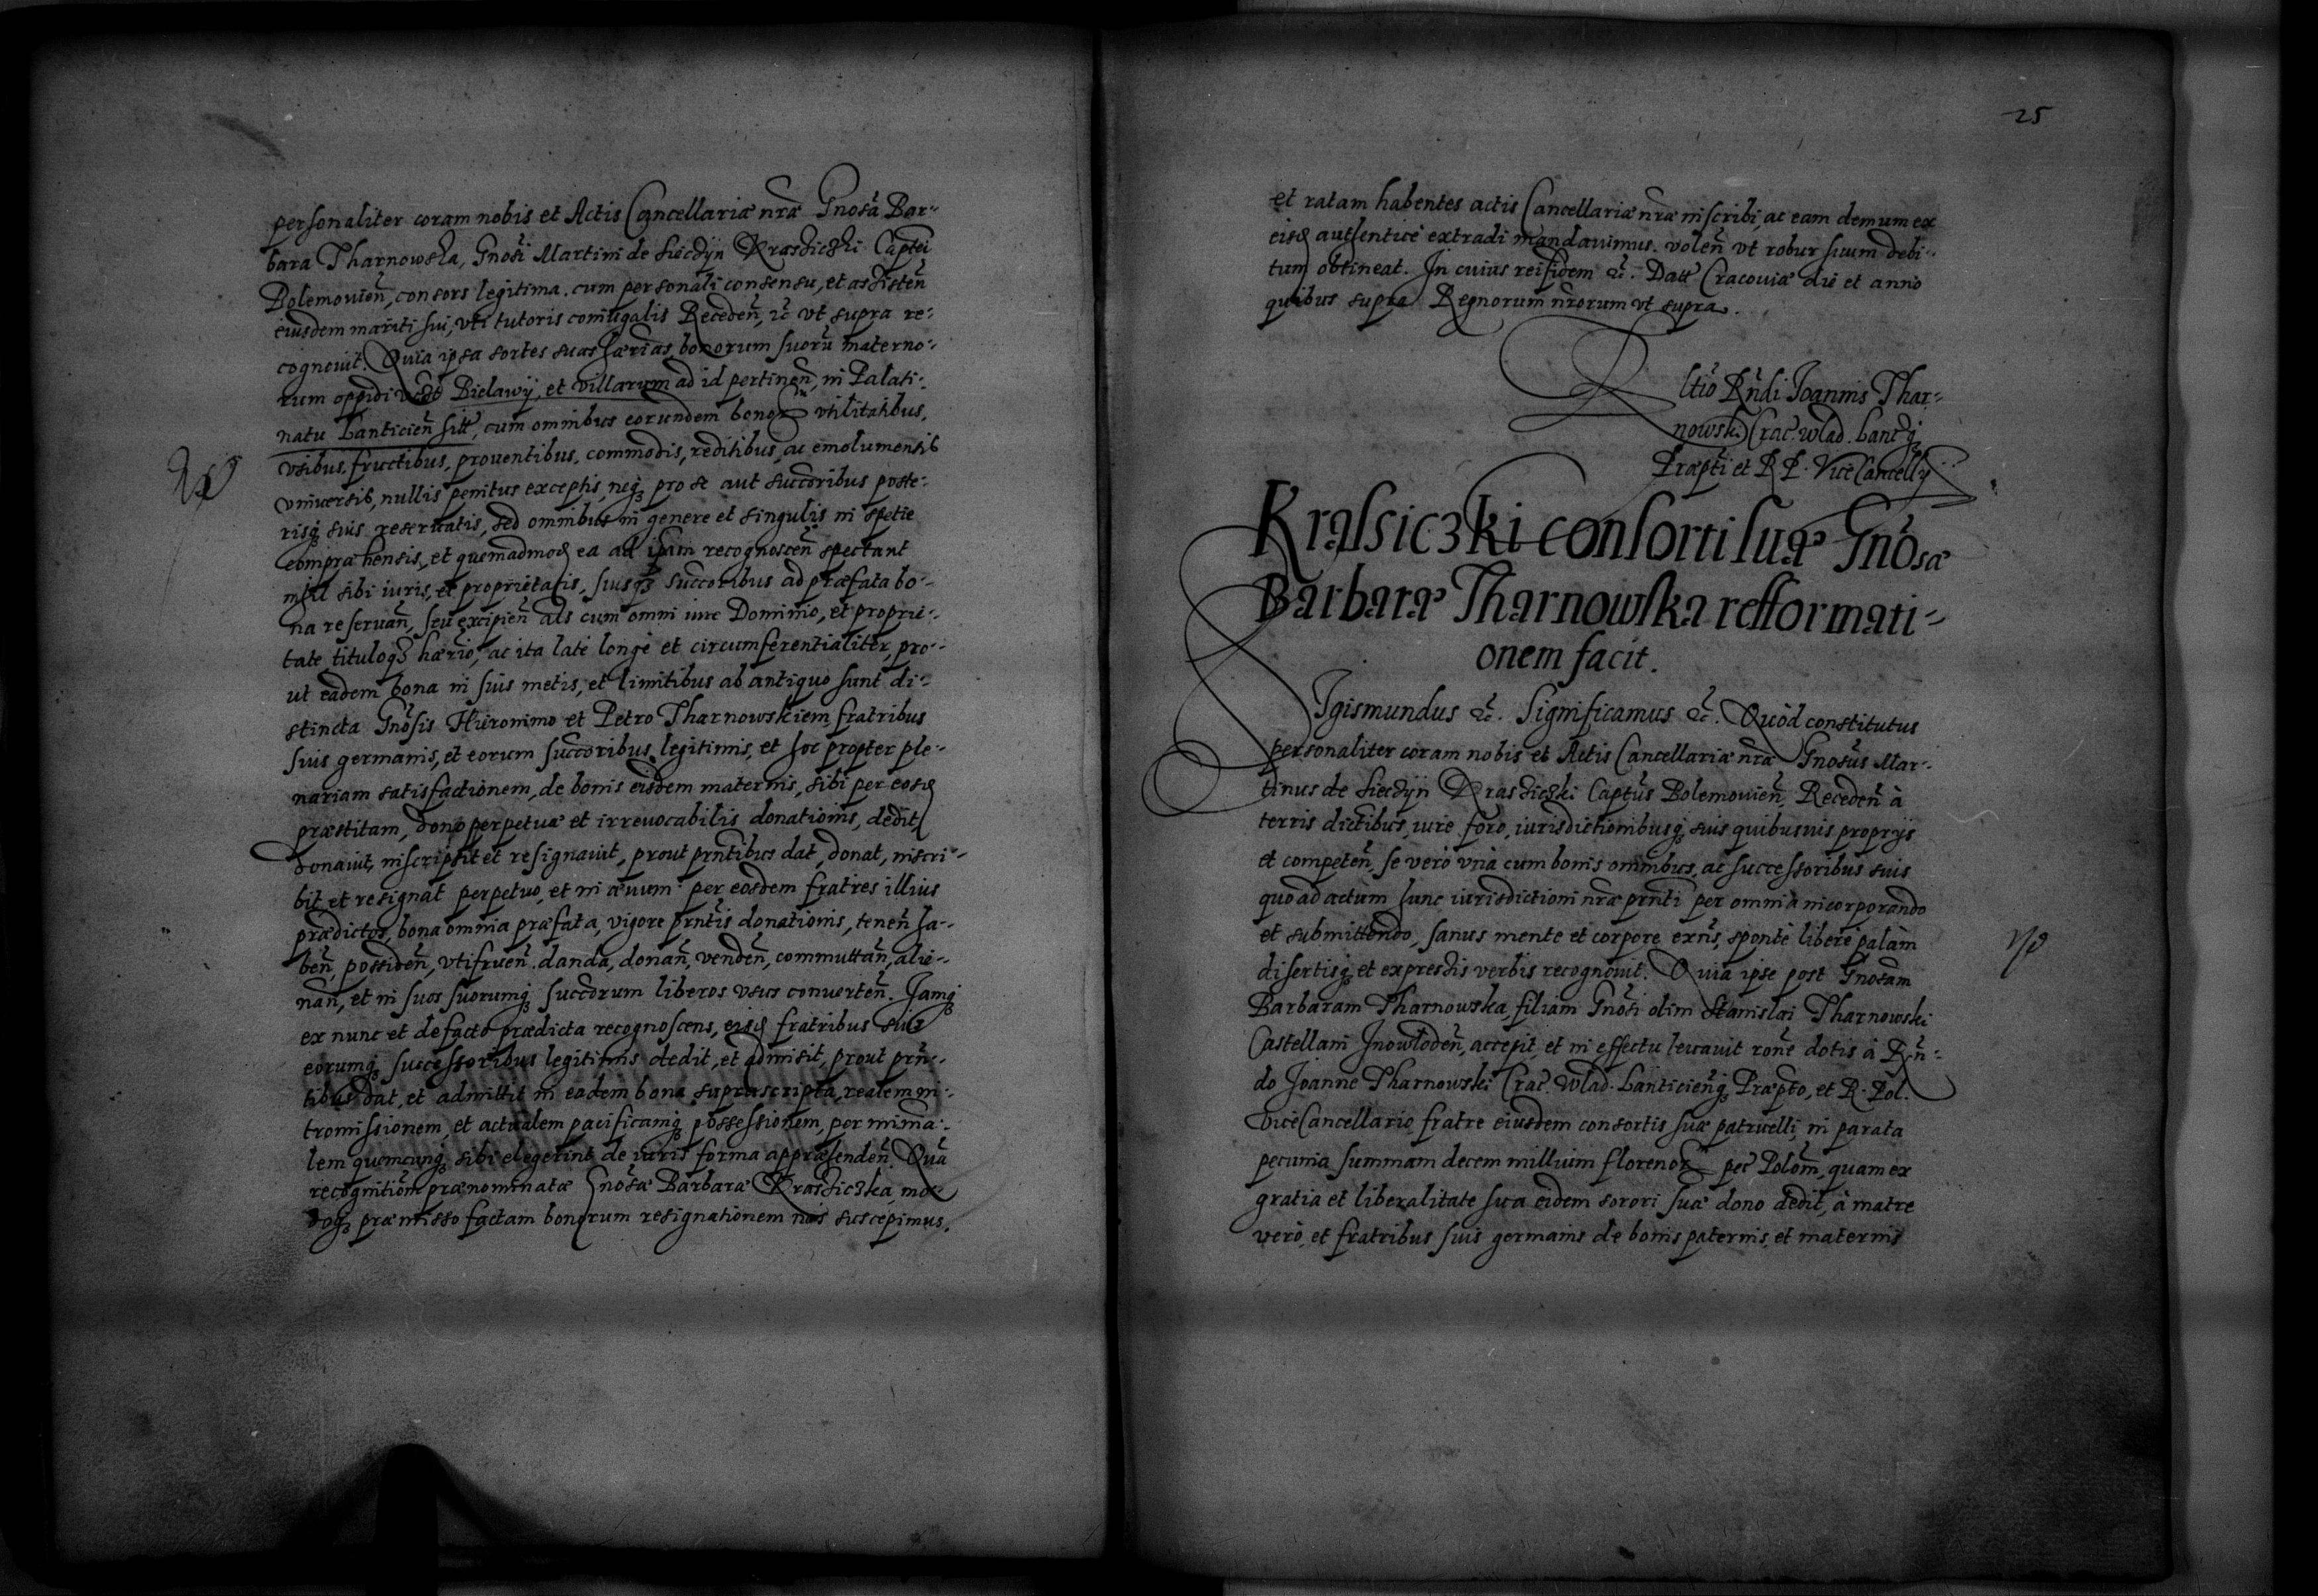 personaliter coram nobis et Actis Cancellariæ nræ Gnosa Bar-
bara Tharnowska, Gnosi Martini de Siecżyn Krasziczki Captei
Bolemouien, consors legitima. cum personali consensu, et assisten
eiusdem mariti sui, vti tutoris coniugalis Receden, &c vt supra re-
cognouit. Quia ipsa sortes suas hærias, bonorum suoru materno-
rum oppidi Bielawy, et villarum ad id pertinen, in Palati-
natu Lanticien sitt, cum omnibus eorundem bonor vtilitatibus,
vsibus, fructibus, prouentibus, commodis, reditibus, ac emolumentis
vniuersis, nullis penitus exceptis, neq pro se aut succoribus poste-
risq suis reseruatis, sed omnibus in genere et singulis in spetie
compræhensis, et quemadmod ea ad ipsam recognoscen spectant
nihil sibi iuris, et proprietatis, suisq succoribus ad præfata bo-
na reseruan, seu excipien als cum omni iure Dominio, et proprie-
tate tituloq hærio, ac ita late longe et circumferentialiter, pro-
ut eadem bona in suis metis, et limitibus ab antiquo sunt di-
stincta Gnosis Hieronimo et Petro Tharnowskiem fratribus
suis germanis, et eorum succoribus legitimis, et hoc propter ple-
nariam satisfactionem, de bonis eisdem maternis, sibi per eosd
præstitam, dono perpetuæ et irreuocabilis donationis, dedit
donauit, inscripsit et resignauit, prout prntibus dat, donat, inscri-
bit et resignat perpetuo, et in æuum per eosdem fratres illius
prædictos, bona omnia præfata, vigore prntis donationis, tenen ha-
ben, possiden, vtifruen. danda, donan, venden, commuttan, alie-
nan, et in suos suorumq succorum liberos vsus conuerten. Jamq
ex nunc et de facto prædicta recognoscens, eisd fratribus suis
eorumq successoribus legitimis dedit, et admisit, prout prn-
tibus dat, et admittit in eadem bona suprascripta, realem in-
tromissionem, et actualem pacificamq possessionem, per minia-
lem quemcunq sibi elegerint de iuris forma appræhenden. Qua
recognitiom prænominatæ Gnosæ Barbaræ Krasziczka, mo-
doq præmisso factam bonorum resignationem nos suscepimus,
25
et ratam habentes actis Cancellariæ nræ inscribi, ac eam demum ex
eisd authentice extradi mandauimus. volen vt robur suum debi-
tum obtineat. In cuius rei fidem &c. Datt Cracouiæ die et anno
quibus supra Regnorum nrorum vt supra.
Rltio Rndi Joannis Thar-
nowski Crac. Wlad. Lancq
Præpti et R P. ViceCancellÿ
Krasiczki consorti suæ Gnosæ
Barbaræ Tharnowska refformati-
onem facit.
Sigismundus &c. Significamus &c. Quod constitutus
personaliter coram nobis et Actis Cancellariæ nræ Gnosus Mar-
tinus de Siecżÿn Krasziczki Captus Bolemouien, Receden à
terris dictibus, iure, foro, iurisdictionibusq suis quibusuis proprÿs
et competen, se verò vnà cum bonis omnibus, ac successoribus suis
quo ad actum hunc iurisdictioni nræ prnti per omnia incorporando
et submittendo, sanus mente et corpore exns, sponte libere palàm
disertisq et expressis verbis recognouit. Quia ipse post Gnosam
Barbaram Tharnowska, filiam Gnosi olim Stanislai Tharnowski
Castellani Jnowłoden, accepit, et in effectu leuauit rone dotis à Rn-
do Joanne Tharnowski Crac. Wlad. Lanticienq Præpto, et R. Pol.
ViceCancellario, fratre eiusdem consortis suæ patrueli, in parata
pecunia summam decem millium florenor pec Polom, quam ex
gratia et liberalitate sua eidem sorori suæ dono dedit, à matre
verò, et fratribus suis germanis de bonis paternis, et maternis